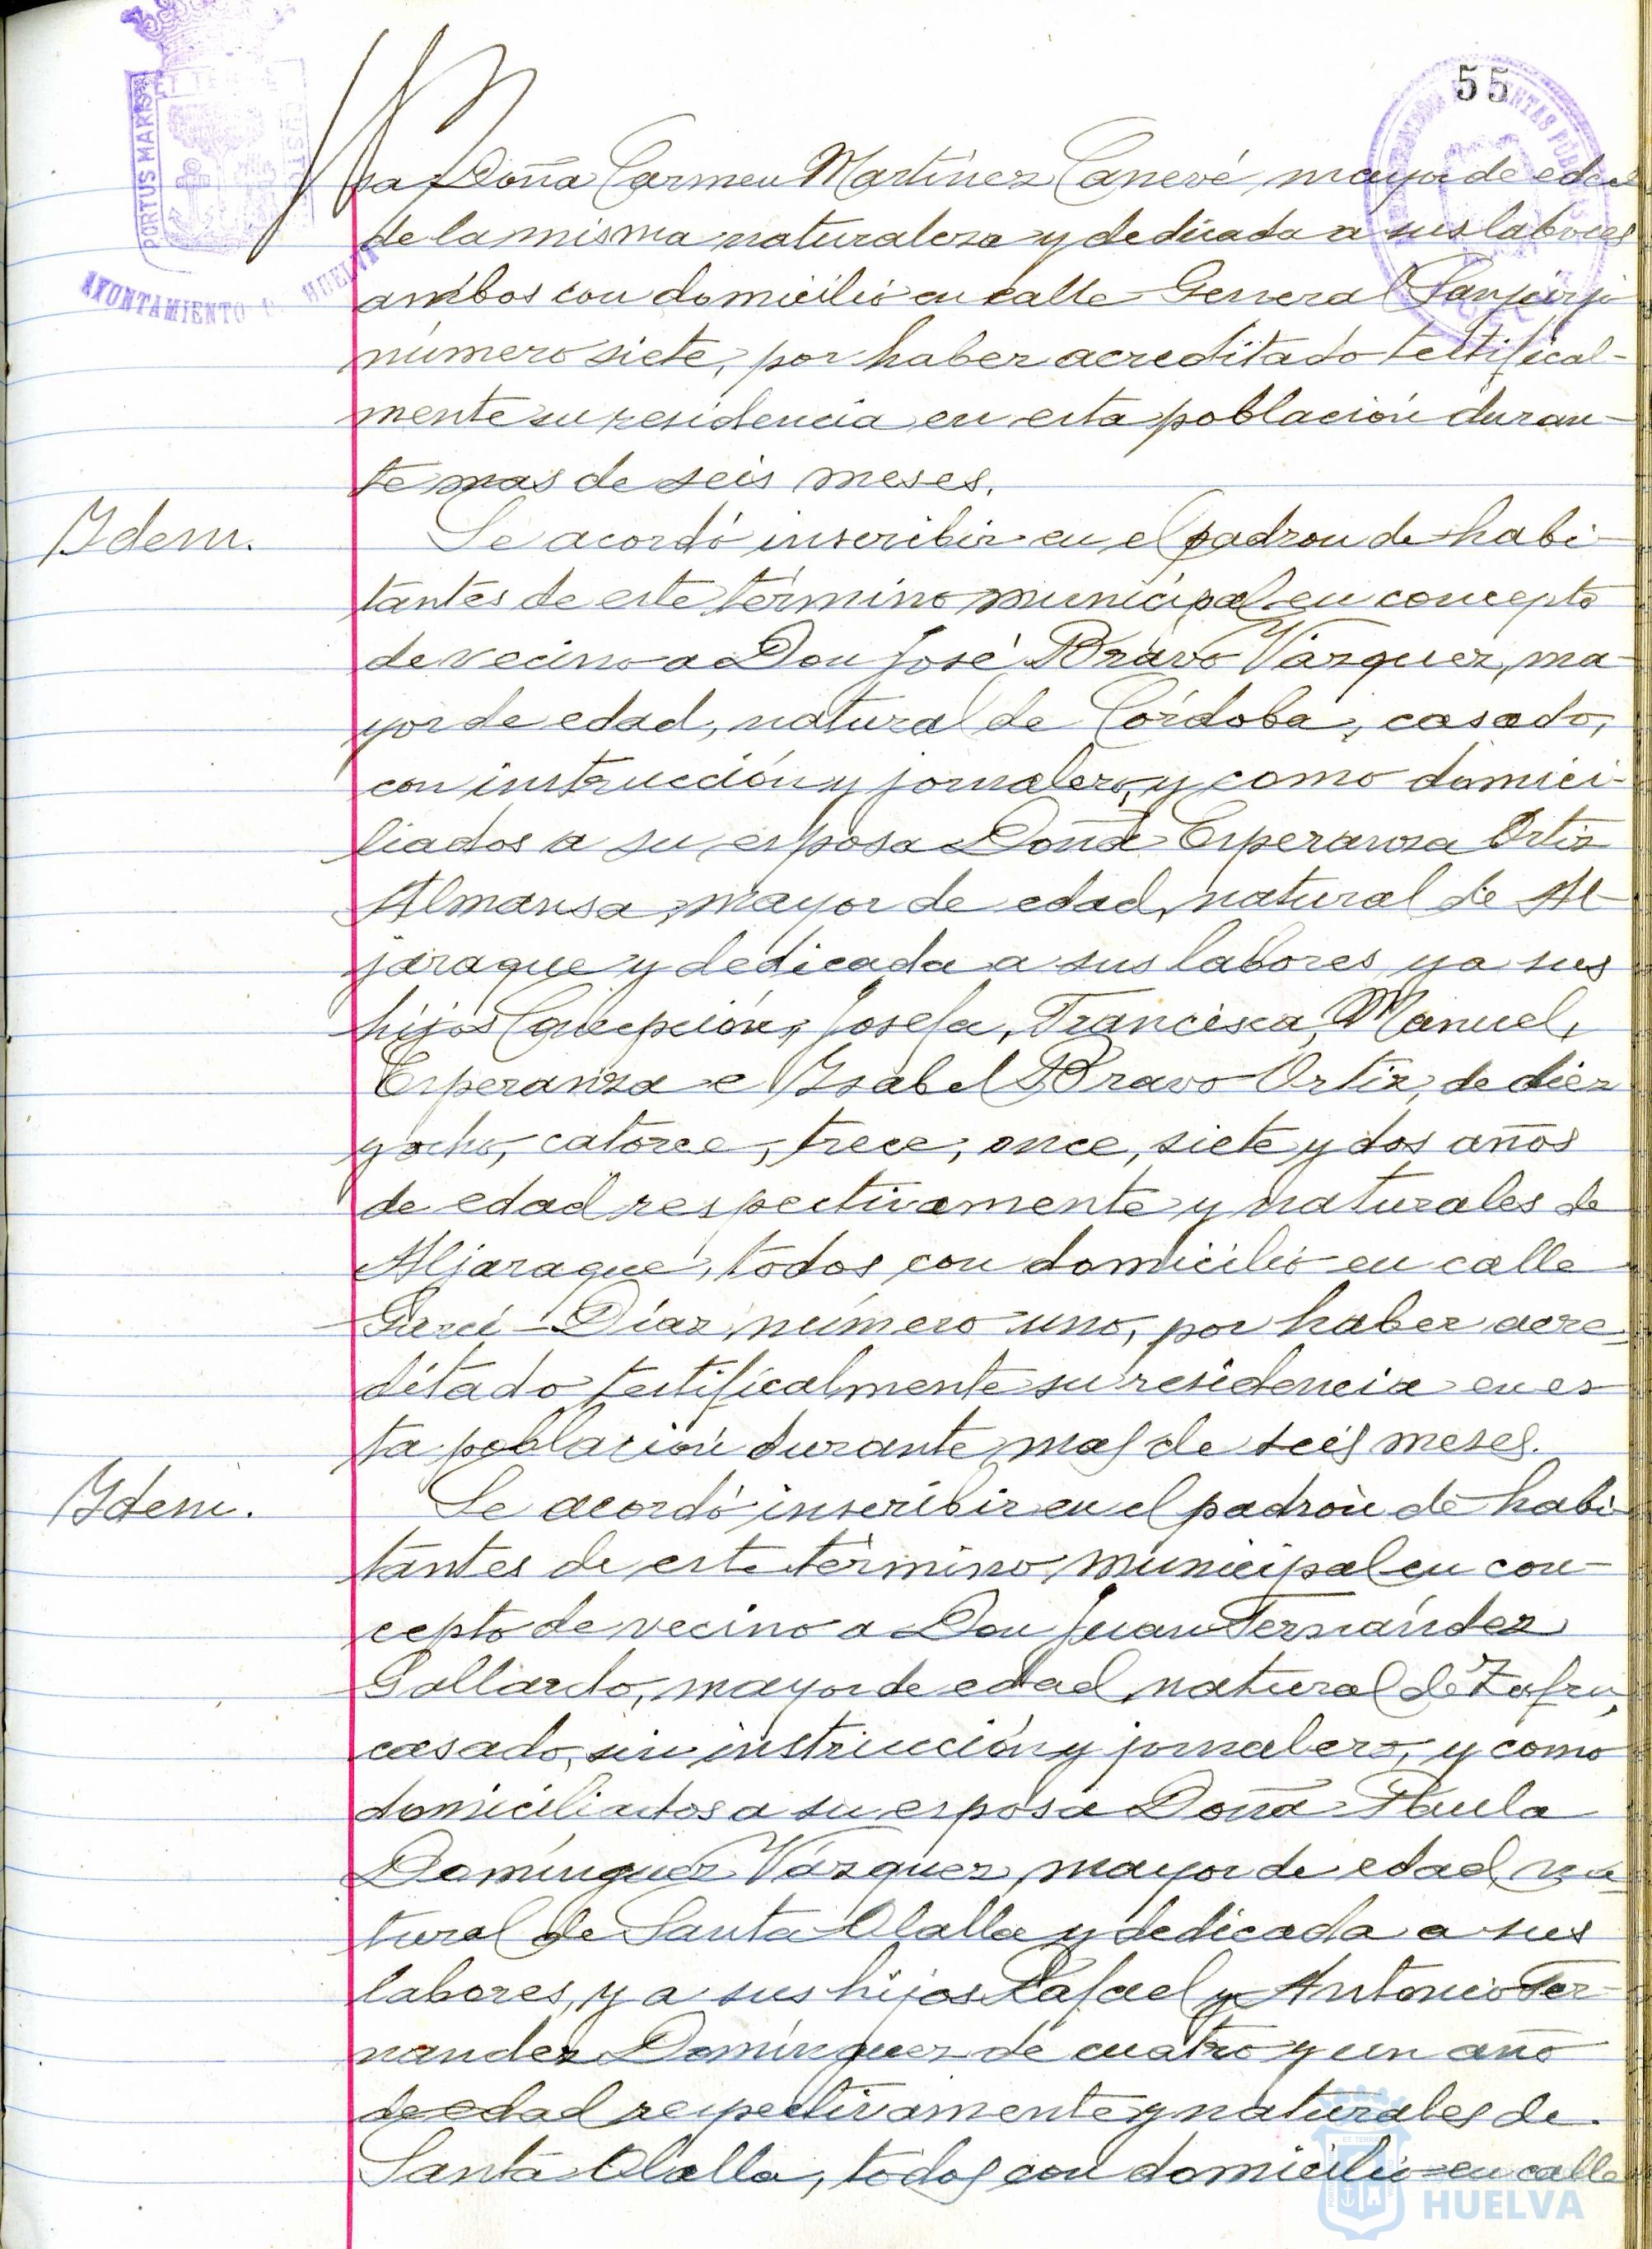 55
PORTUS MARIS ET TERRE CUSTO
AYUNTAMIENTO HUELVA
sa Doña Carmen Martínez Canevé, mayor de edad
de la misma naturaleza y dedicada a sus labores
ambos con domicilio en calle General Sanjurjo
número siete, por haber acreditado testifical-
mente su residencia en esta población duran-
te mas de seis meses.
Ydem.
Se acordó inscribir en el padron de habi-
tantes de este término municipal en concepto
de vecino a Don José Bravo Vázquez, ma-
yor de edad, natural de Córdoba, casado,
con instrucción y jornalero, y como domici-
liados a su esposa Doña Esperanza Ortiz
Almansa, mayor de edad, natural de Al-
jaraque y dedicada a sus labores y a sus
hijos Concepción, Josefa, Francisca, Manuel,
Esperanza e Ysabel Bravo Ortiz, de diez
y ocho, catorce, trece, once, siete y dos años
de edad respectivamente y naturales de
Aljaraque, todos con domicilio en calle
Garci-Díaz número uno, por haber acre-
ditado testificalmente su residencia en es-
ta población durante mas de seis meses.
Ydem.
Se acordó inscribir en el padrón de habi-
tantes de este término municipal en con-
cepto de vecino a Don Juan Fernández
Gallardo, mayor de edad, natural de Zufre,
casado, sin instrucción y jornalero, y como
domiciliados a su esposa Doña Paula
Domínguez Vázquez, mayor de edad, na-
tural de Santa Olalla y dedicada a sus
labores, y a sus hijos Rafael y Antonio Fer-
nandez Domínguez de cuatro y un año
de edad respectivamente y naturales de
Santa Olalla, todos con domicilio en calle
HUELVA